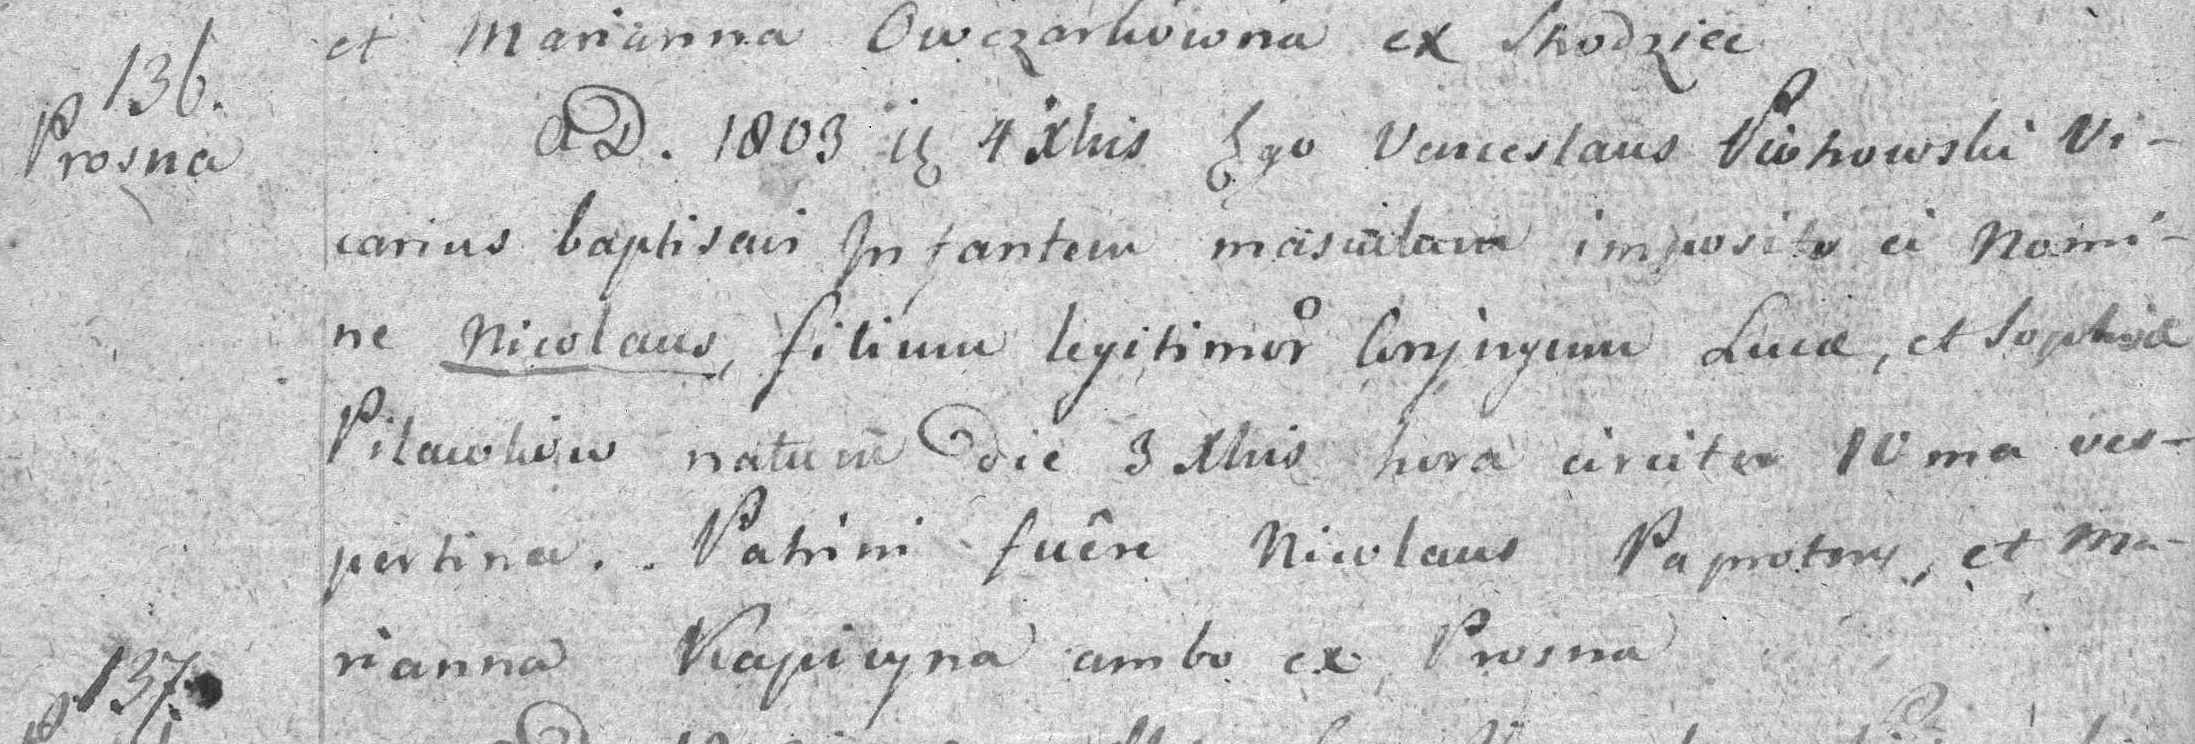 et Marianna Owczarkowna ex Skodziec
136.
Prosna
AD. 1803 4 Xbris Ego Venceslaus Vi-
carius baptisavi Infantem masculum imposito ei Nomi-
ne Nicolaus, filium legitimor Conjugum Lucæ, et Sophiæ
Pilawkow natum die 3 Xbris hora circiter 10 ma ves-
pertina. . Patrini fuêre Nicolaus Paprotny, et Ma-
rianna Kapicyna ambo ex Prosna
137.